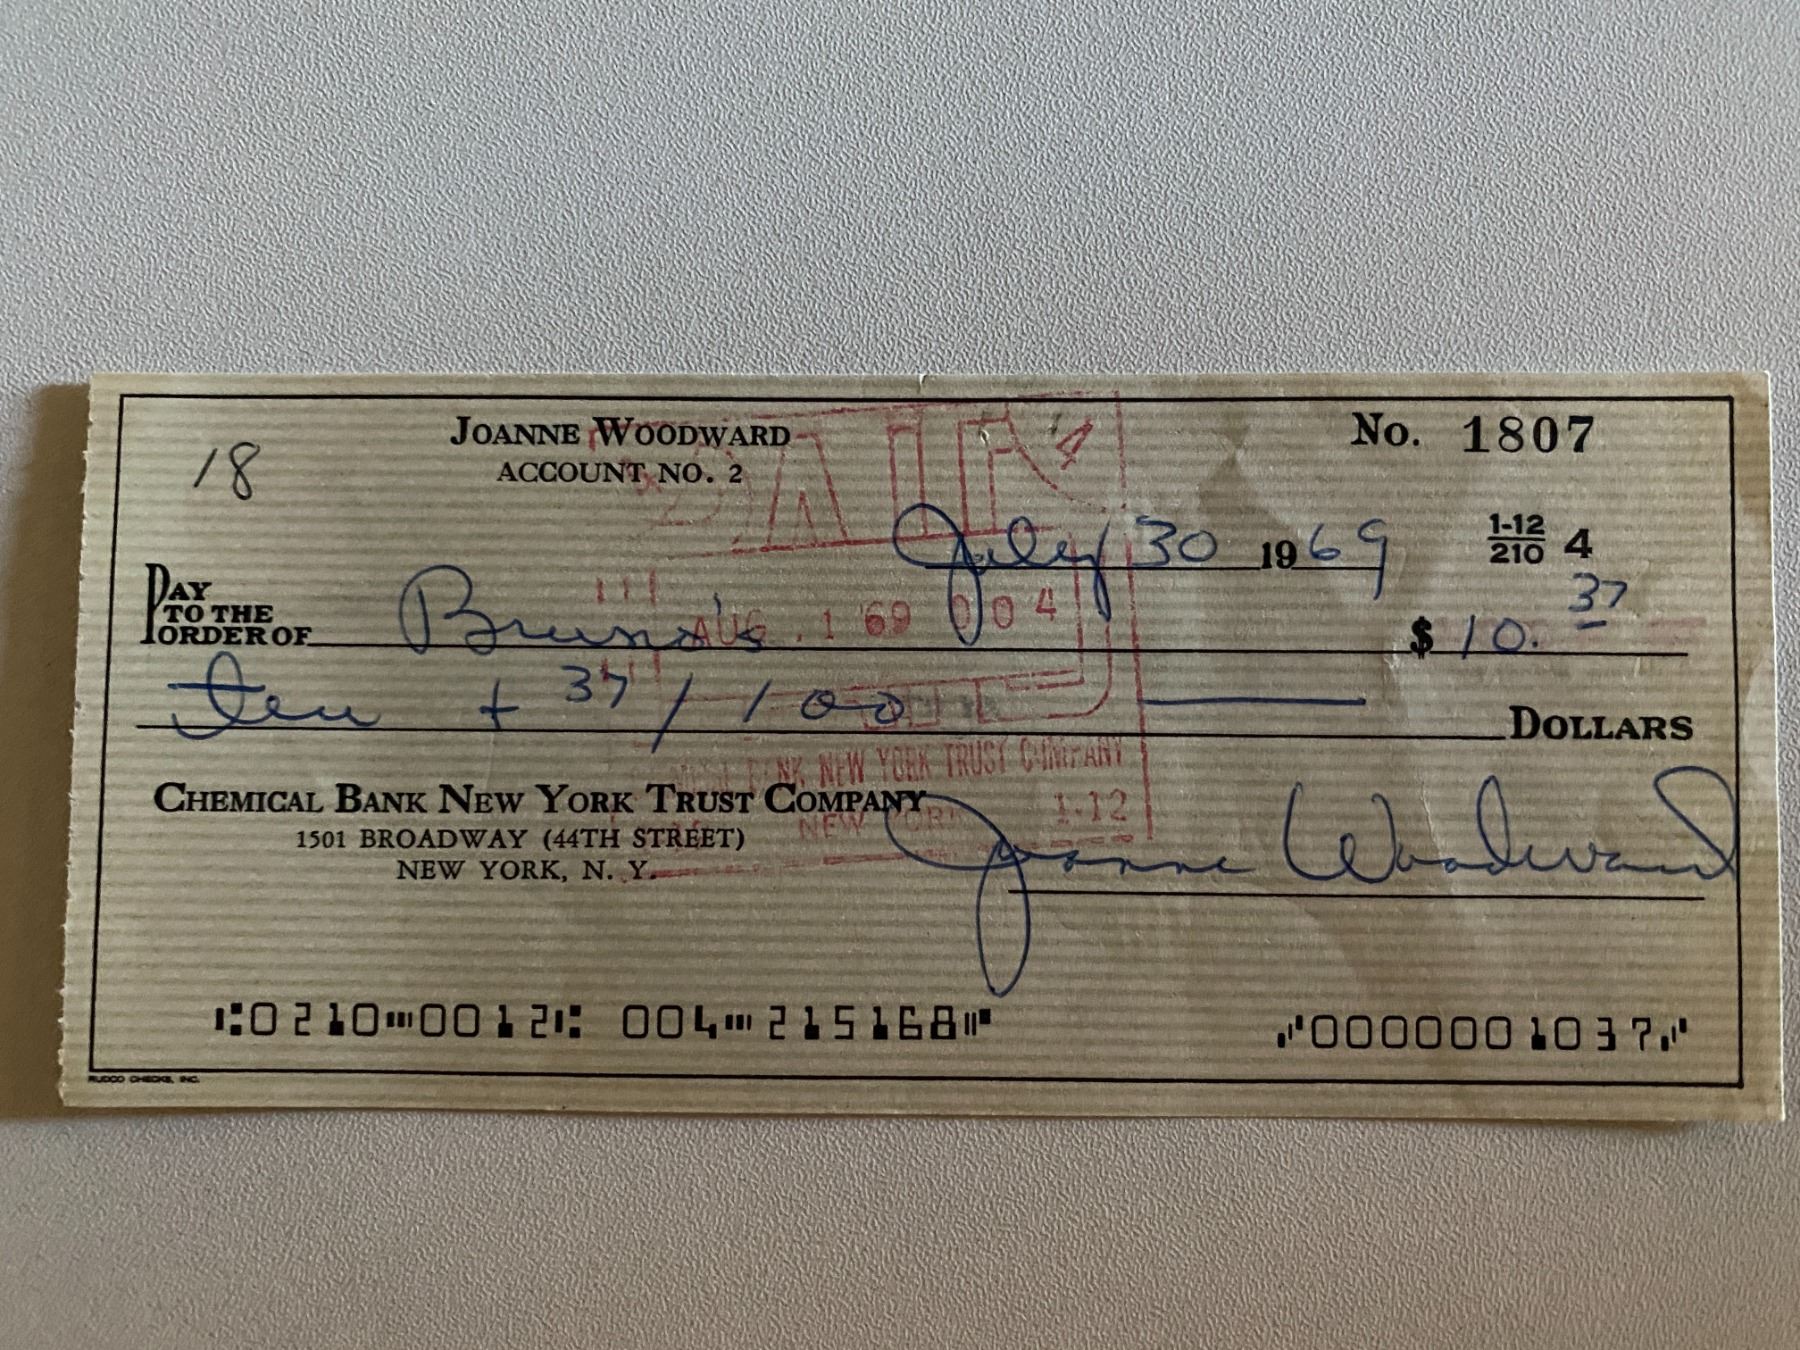 JOANNE WOODWARD
ACCOUNT NO. 2
No. 1807
18
July 30 1969
1-12
210 4
PAY
TO THE
ORDER OF Bruno's $ 10. 37
ten + 37/100 DOLLARS
PAID
AUG. 1 69 004
BANK NEW YORK TRUST COMPANY
NEW YORK 1-12
CHEMICAL BANK NEW YORK TRUST COMPANY
1501 BROADWAY (44TH STREET)
NEW YORK, N. Y.
Joanne Woodward
⑆0210⑉0012⑆ 004⑉215168⑈ ⑇0000001037⑇
RUDCO CHECKS, INC.